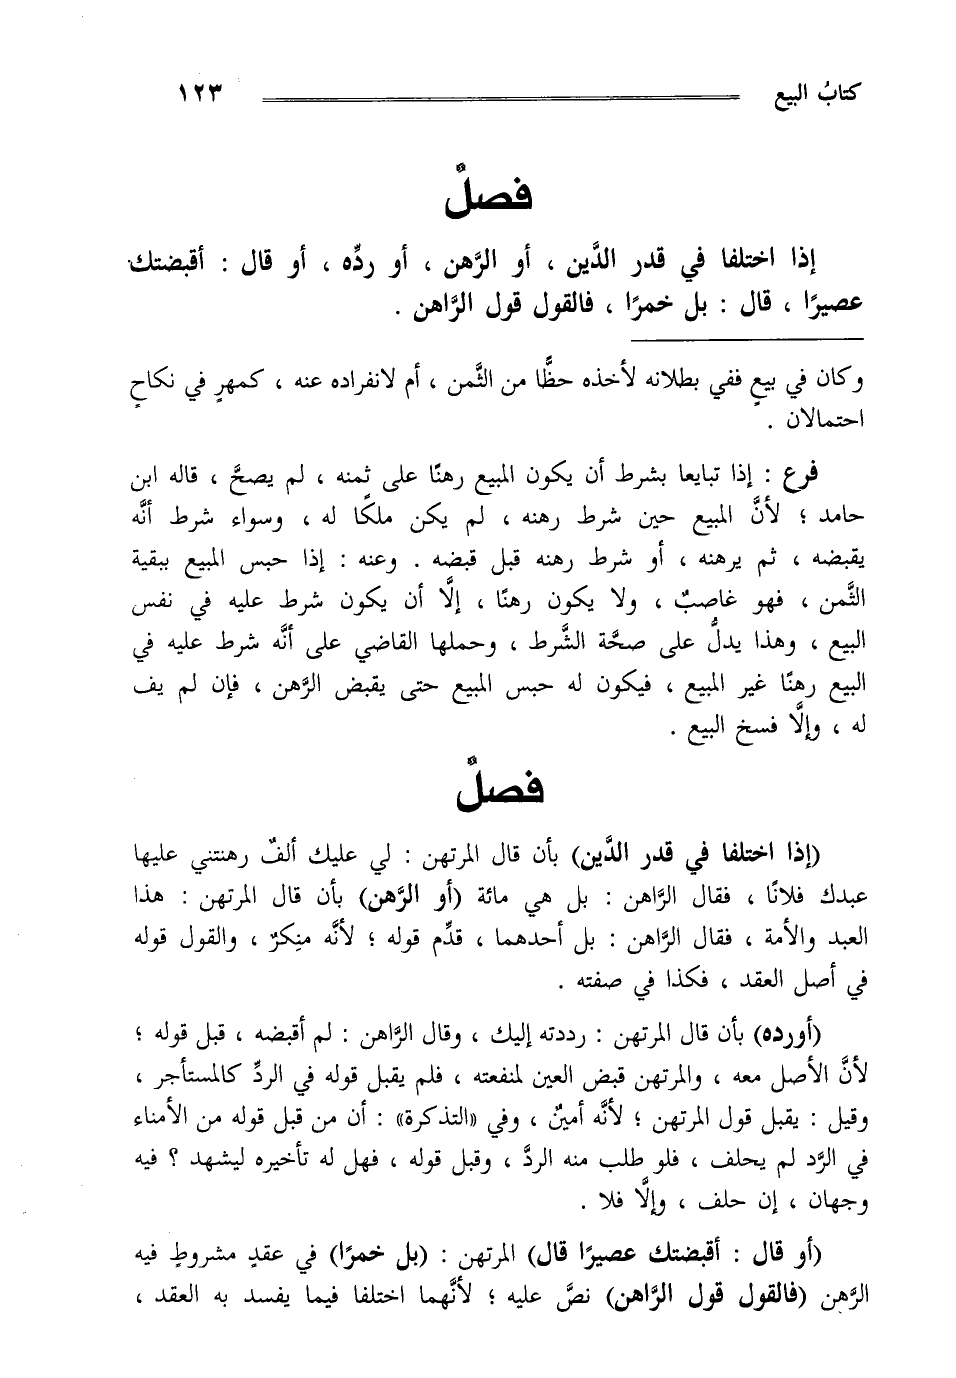 كتابُ البيع ١٢٣
فصلٌ
إذا اختلفا في قدر الدَّين ، أو الرَّهن ، أو ردِّه ، أو قال : أقبضتك
عصيرًا ، قال : بل خمرًا ، فالقول قول الرَّاهن .
وكان في بيعٍ ففي بطلانه لأخذه حظًّا من الثَّمن ، أم لانفراده عنه ، كمهرٍ في نكاحٍ
احتمالان .
فرع : إذا تبايعا بشرط أن يكون المبيع رهنًا على ثمنه ، لم يصحَّ ، قاله ابن
حامد ؛ لأنَّ المبيع حين شرط رهنه ، لم يكن ملكًا له ، وسواء شرط أنَّه
يقبضه ، ثم يرهنه ، أو شرط رهنه قبل قبضه . وعنه : إذا حبس المبيع ببقية
الثَّمن ، فهو غاصبٌ ، ولا يكون رهنًا ، إلَّا أن يكون شرط عليه في نفس
البيع ، وهذا يدلُّ على صحَّة الشَّرط ، وحملها القاضي على أنَّه شرط عليه في
البيع رهنًا غير المبيع ، فيكون له حبس المبيع حتى يقبض الرَّهن ، فإن لم يف
له ، وإلَّا فسخ البيع .
فصلٌ
(إذا اختلفا في قدر الدَّين) بأن قال المرتهن : لي عليك ألفٌ رهنتني عليها
عبدك فلانًا ، فقال الرَّاهن : بل هي مائة (أو الرَّهن) بأن قال المرتهن : هذا
العبد والأمة ، فقال الرَّاهن : بل أحدهما ، قدِّم قوله ؛ لأنَّه منكرٌ ، والقول قوله
في أصل العقد ، فكذا في صفته .
(أورده) بأن قال المرتهن : رددته إليك ، وقال الرَّاهن : لم أقبضه ، قبل قوله ؛
لأنَّ الأصل معه ، والمرتهن قبض العين لمنفعته ، فلم يقبل قوله في الردِّ كالمستأجر ،
وقيل : يقبل قول المرتهن ؛ لأنَّه أمينٌ ، وفي «التذكرة» : أن من قبل قوله من الأمناء
في الرَّد لم يحلف ، فلو طلب منه الردَّ ، وقبل قوله ، فهل له تأخيره ليشهد ؟ فيه
وجهان ، إن حلف ، وإلَّا فلا .
(أو قال : أقبضتك عصيرًا قال) المرتهن : (بل خمرًا) في عقدٍ مشروطٍ فيه
الرَّهن (فالقول قول الرَّاهن) نصَّ عليه ؛ لأنَّهما اختلفا فيما يفسد به العقد ،